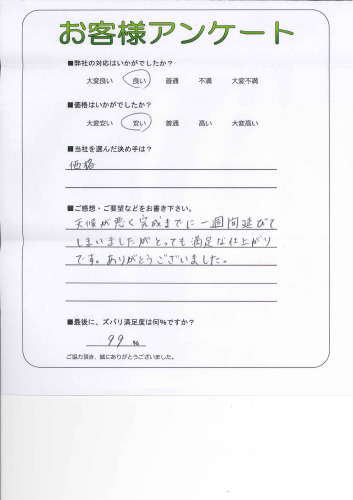 お客様アンケート
■弊社の対応はいかがでしたか？
大変良い 良い 普通 不満 大変不満
■価格はいかがでしたか？
大変安い 安い 普通 高い 大変高い
■当社を選んだ決め手は？
価格
■ご感想・ご要望などをお書き下さい。
天候が悪く完成までに一週間延びて
しまいましたがとっても満足な仕上がり
です。ありがとうございました。
■最後に、ズバリ満足度は何%ですか？
99 %
ご協力頂き、誠にありがとうございました。